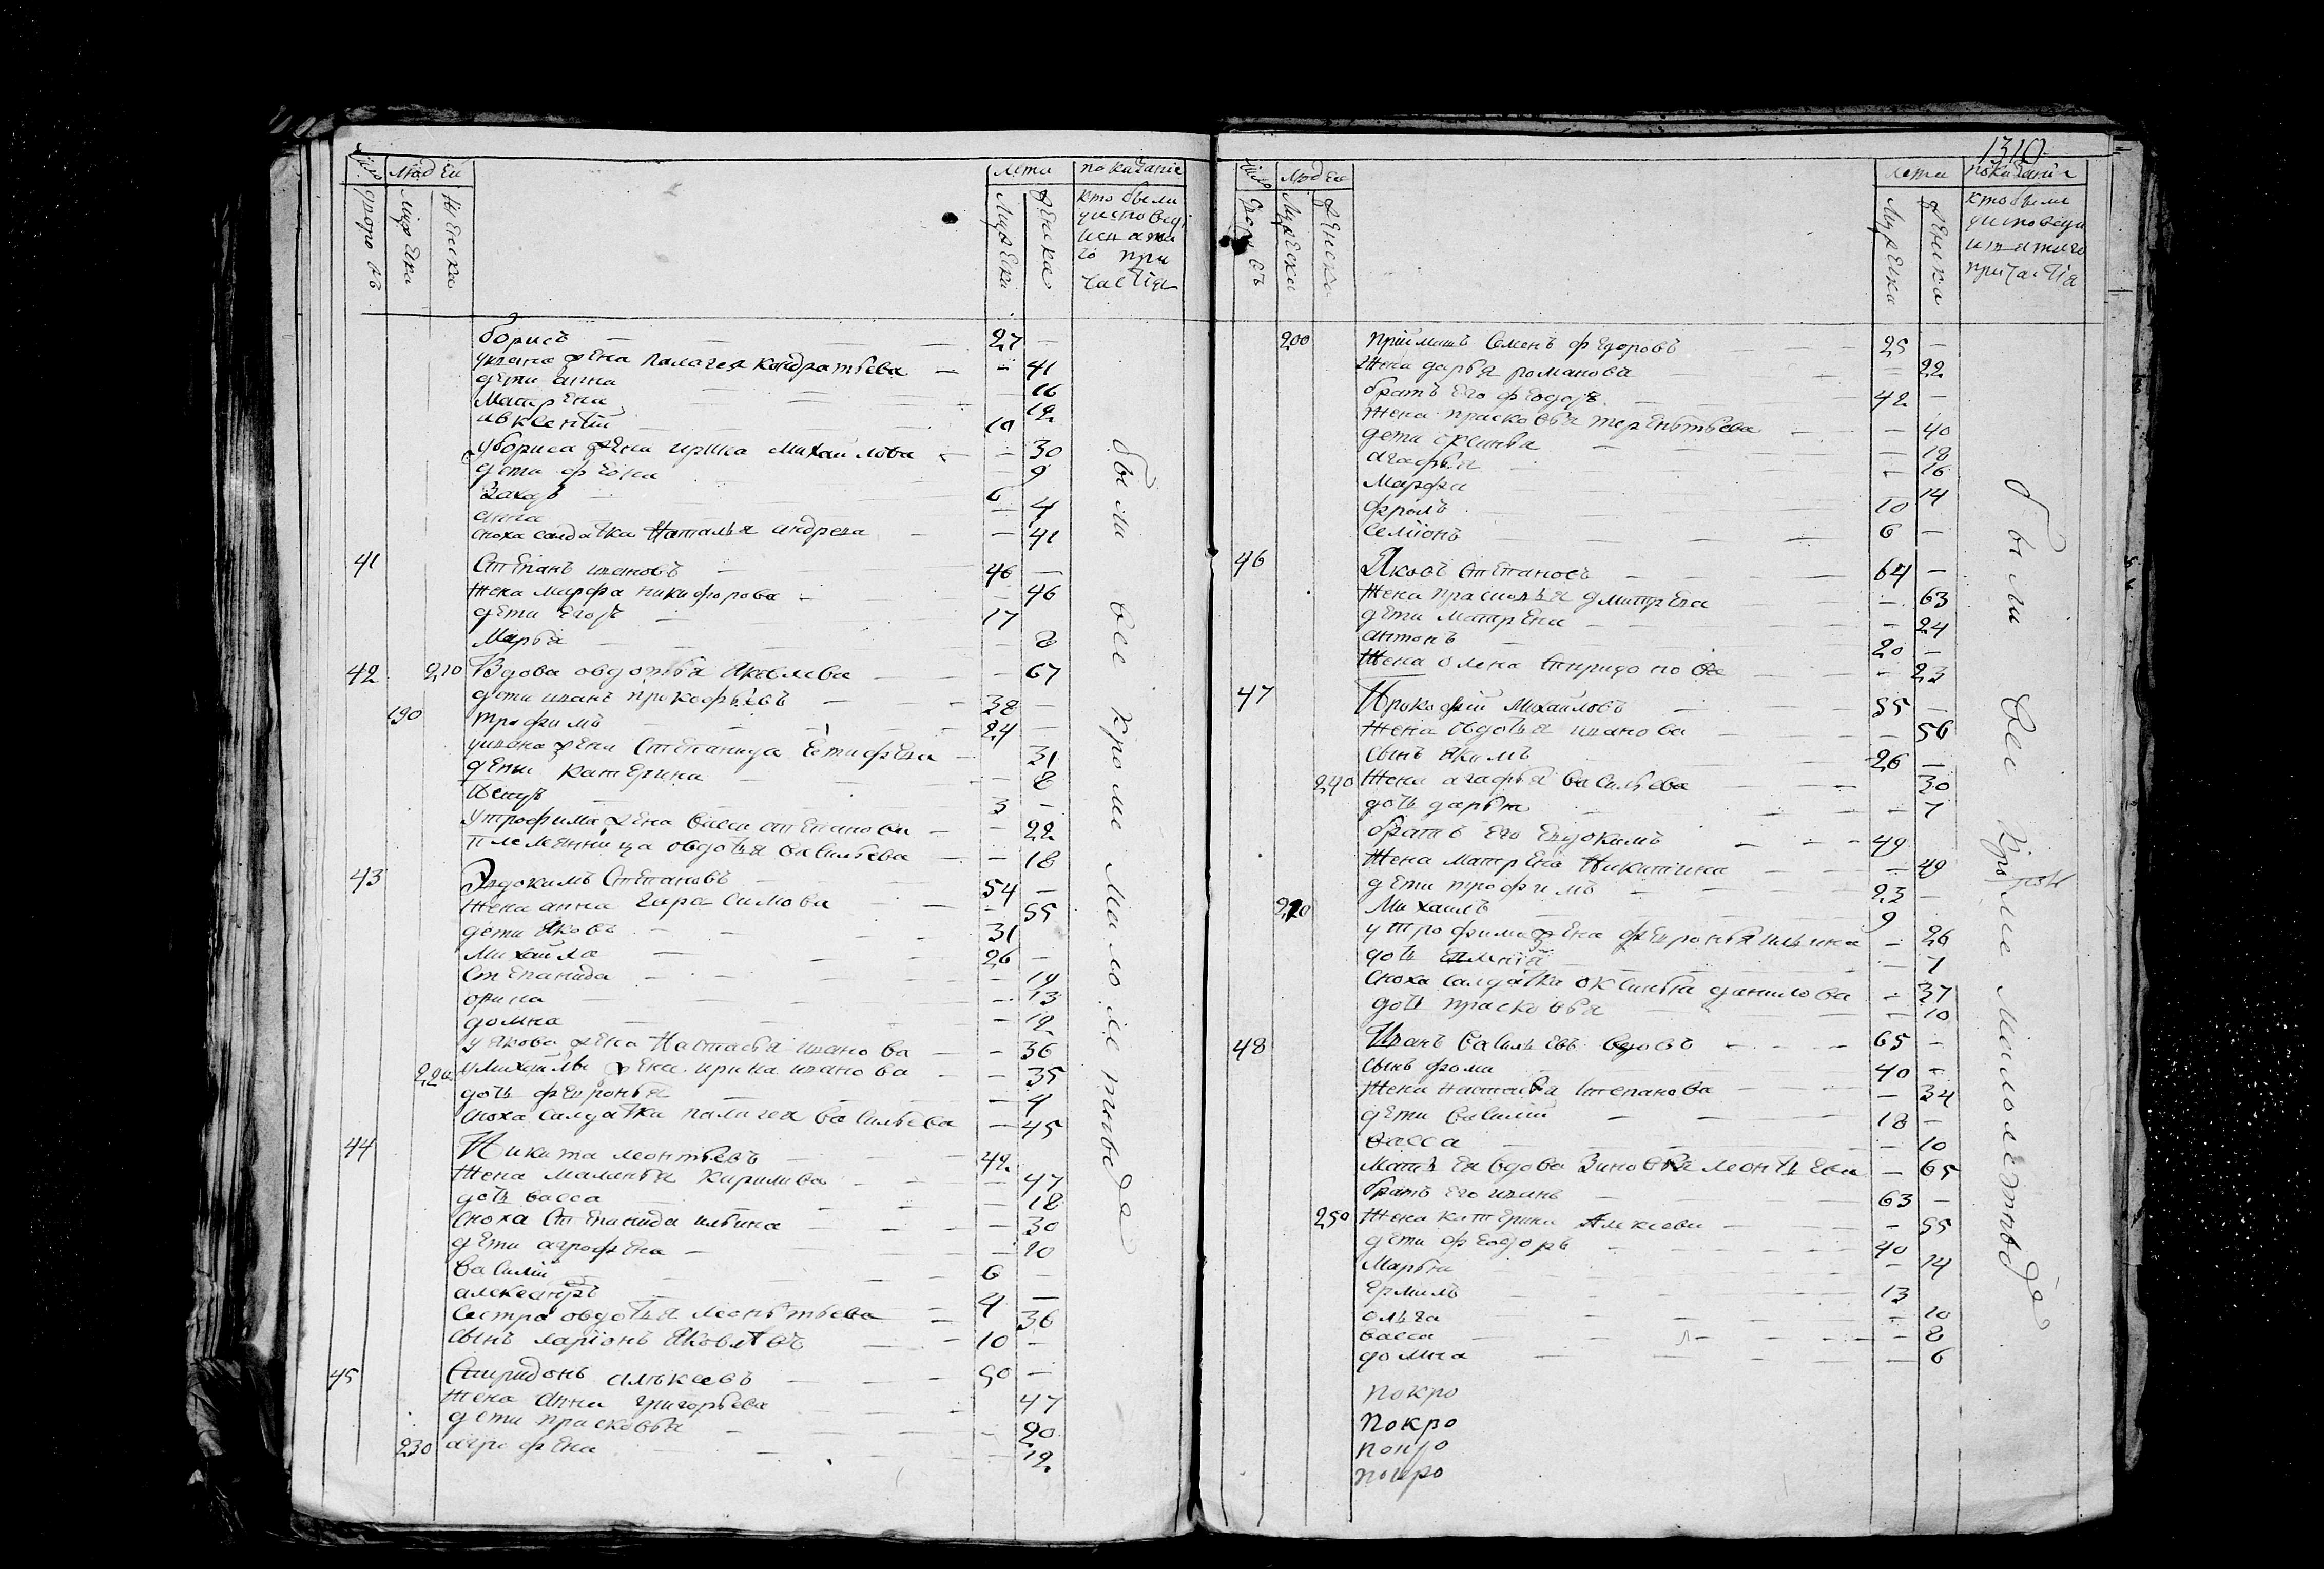 людеи
лета
показание
кто были
у исповеди
и святаго
при
частия
дворовъ
мужеска
женска
мужеска
женска
борисъ — 27 —
у ивана жена палагея кондратьева — — 41
дети анна 16
матрена 12
авксентий 10
у бориса жена ирина михаилова — 30
дети феона 9
Захаръ 6
анна — 4
сноха салдатка наталья андреева — — 41
41 Степанъ ивановъ — 46 —
жена марфа никифорова — — 46
дети егоръ — 17
марья — — 8
42 210 Вдова овдотья яковлева — — 67
дети иванъ прокофьевъ — 38 —
190 трофимъ — 24 —
у ивана жена степанида естифеева — 31
дети катерина — — 8
3 —
у трофима жена васса степанова — — 22
племянница овдотья васильева — — 18
43 Эвдокимъ Степановъ — 54 —
жена анна гарасимова — — 55
дети яковъ — 31
михаила — 26 —
степанида — — 19
орина — — 13
домна — — 12
у якова жена настасья иванова — — 36
220 у михаилы жена ирина иванова — — 35
доть февронья — — 4
сноха салдатка палагея васильева — 45
44 Никита леонтьевъ — 42
жена маланья кирилова — — 47
доть васса — — 18
сноха степанида ильина — — 30
дети агрофена — — 10
василий — 6 —
александръ — 4 —
сестра овдотья леонтьева — 36
сынъ ларионъ яковлевъ — 10 —
45 Спиридонъ алексеевъ — 50 —
жена анна григорьева — 47
дети прасковья — — 20
230 агрофена — — 12
были все кроме малолетныхъ
1310
людеи
лета
показание
кто были
у исповеди
и святаго
причастия
мужеска
женска
мужеска
женска
200 приимышъ семенъ федоровъ — 25 —
жена дарья романова — — 22
братъ его федоръ — 42 —
жена прасковья терентьева — — 40
дети оксинья — — 18
агафья — — 16
марфа — 14
фролъ — 10
семионъ — 6 —
46 Яковъ степановъ — 64 —
жена прасковья дмитреева — — 63
дети матрена — — 24
антонъ — 20 —
жена олена спиридонова — — 23
47 Прокофий михаиловъ — 55 —
жена овдотья иванова — — 56
сынъ якимъ — 26 —
240 жена агафья васильева — 30
доть дарья — — 7
братъ его евдокимъ — 49
жена матрена никитина — — 49
дети трофимъ — 23 —
210 михаилъ — 9
у трофима жена февронья ильина — 26
доть — 1
сноха салдатка оксинья данилова — — 37
доть прасковья — — 10
48 Иванъ васильевъ вдовъ — 65 —
сынъ фома — 40 —
жена настасья степанова — — 34
дети василий — 18 —
васса — — 10
мать ея вдова зиновья леонтьева — 65
братъ его иванъ — 63 —
250 жена катерина алексеева — — 55
дети феодоръ — 40
марья — — 14
ермилъ — 13
ольга — — 10
васса — — 8
домна — — 6
покро
покро
покро
покро
были все кроме малолетныхъ